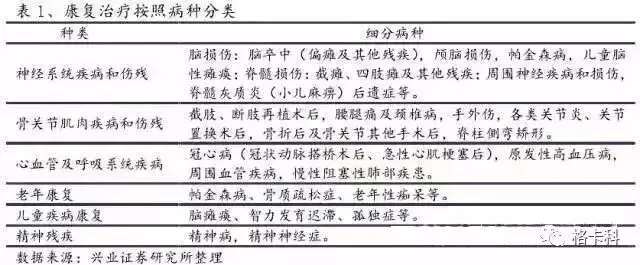 表 1、康复治疗按照病种分类
种类 细分病种
神经系统疾病和伤残 脑损伤：脑卒中（偏瘫及其他残疾），颅脑损伤，帕金森病，儿童脑
性瘫痪；脊髓损伤：截瘫、四肢瘫及其他残疾；周围神经疾病和损伤，
脊髓灰质炎（小儿麻痹）后遗症等。
骨关节肌肉疾病和伤残 截肢、断肢再植术后，腰腿痛及颈椎病，手外伤，各类关节炎、关节
置换术后，骨折后及骨关节其他手术后，脊柱侧弯矫形。
心血管及呼吸系统疾病 冠心病（冠状动脉搭桥术后、急性心肌梗塞后），原发性高血压病，
周围血管疾病，慢性阻塞性肺部疾患。
老年康复 帕金森病、骨质疏松症、老年性痴呆等。
儿童疾病康复 脑瘫痪、智力发育迟滞、孤独症等。
精神残疾 精神病，精神神经症。
格卡科
数据来源：兴业证券研究所整理